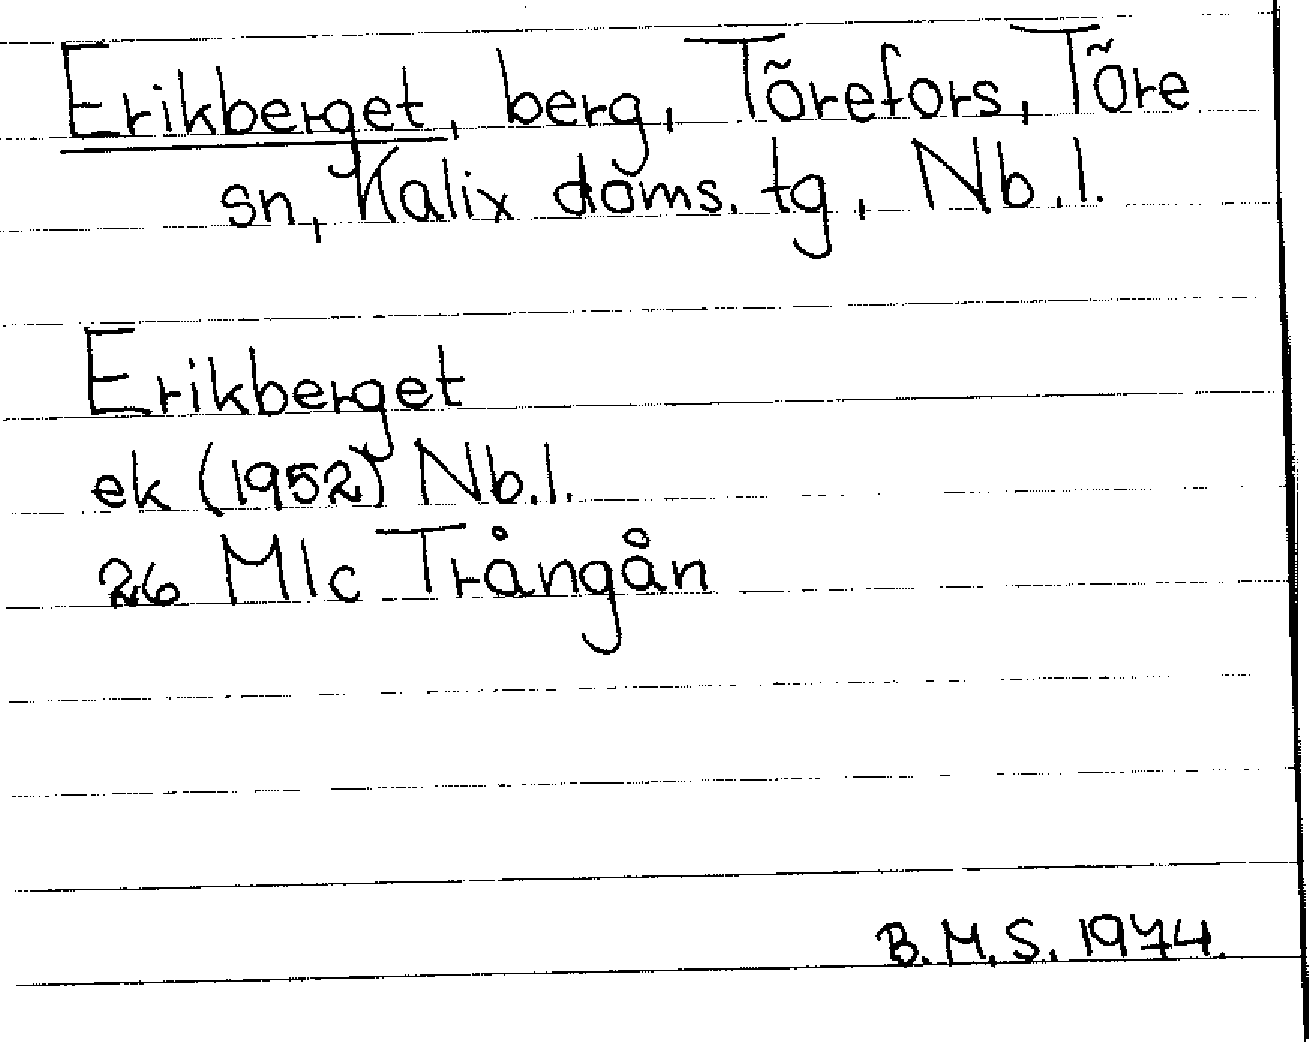 Erikberget, berg, Törefors, Töre
sn, Kalix doms. tg, Nb.l.
Erikberget
ek (1952) Nb.l.
26 Mlc Trångån
B.M.S. 1974.